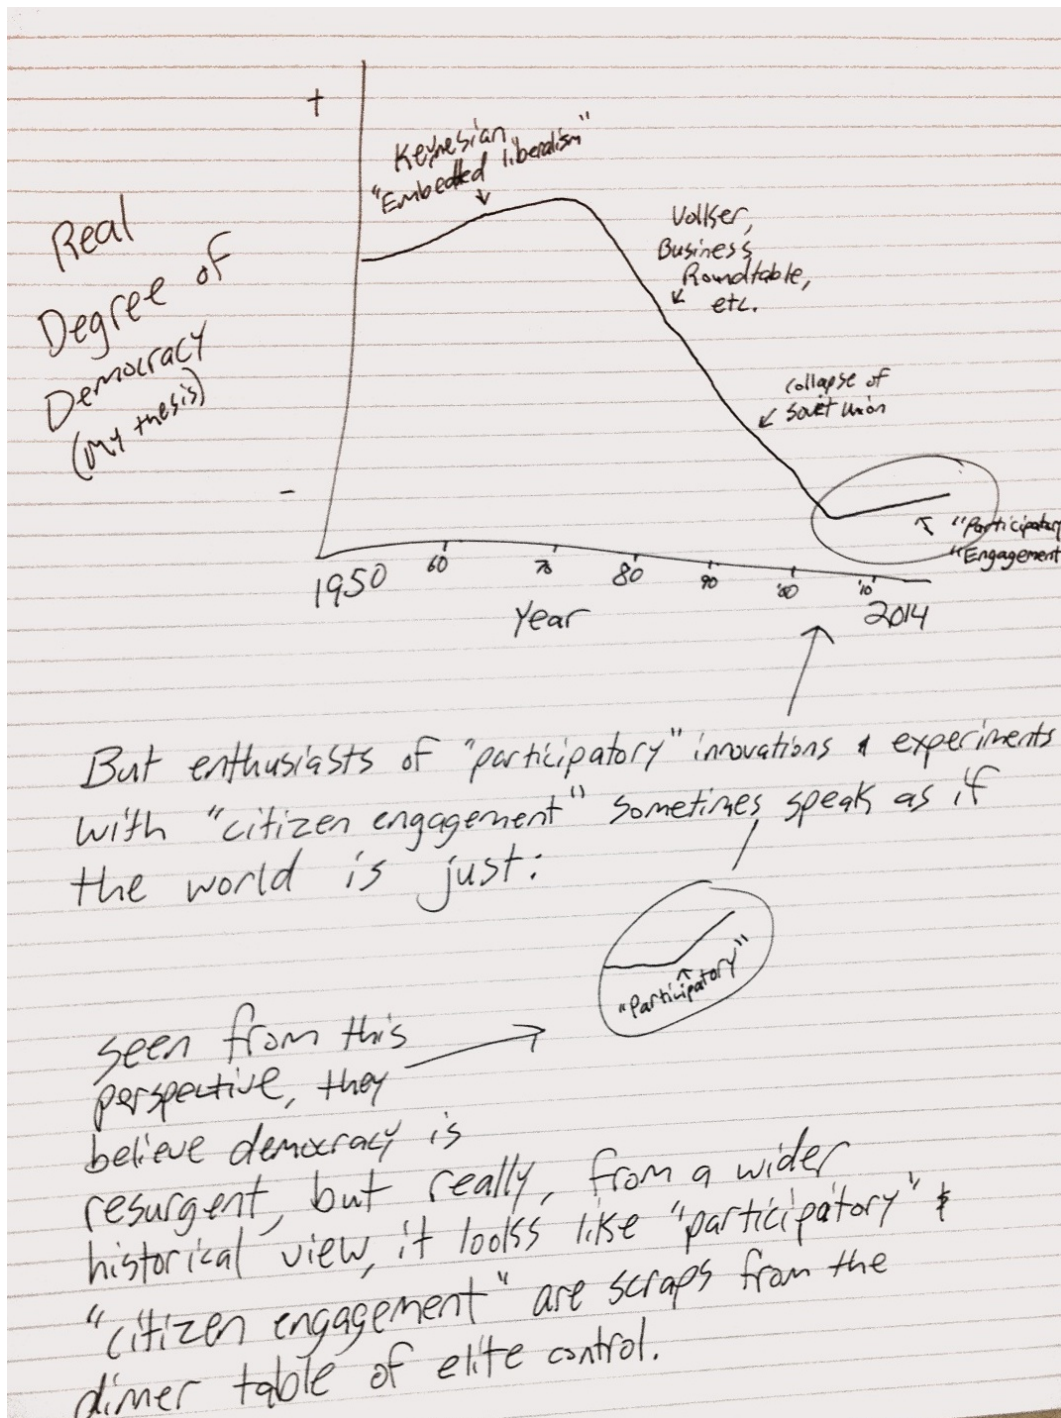 +
Keynesian
"Embedded liberalism"
Real
Degree of
Democracy
(my thesis)
Volker,
Business
Roundtable,
etc.
collapse of
Soviet Union
-
"Participatory
"Engagement
1950 60 70 80 90 '00 '10 2014
Year
But enthusiasts of "participatory" innovations & experiments
with "citizen engagement" sometimes speak as if
the world is just:
"Participatory"
seen from this
perspective, they
believe democracy is
resurgent, but really, from a wider
historical view, it looks like "participatory" &
"citizen engagement" are scraps from the
dinner table of elite control.